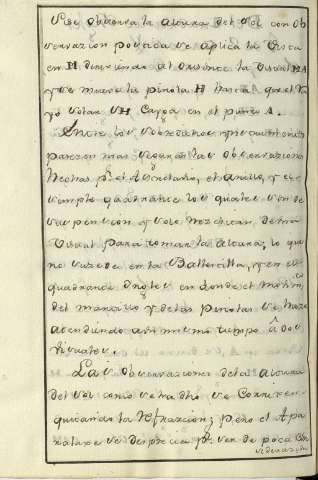 Y se observa la altura del sol con ob
servazion puesta se aplica la vista
en M dirixiendo al Orizonte la visual MA
y se mueva la pinola H hasta que el Ra
yo solar SH Cayga en el punto A.
Entre los sobredichos ynstrumentos
parezen mas seguras las observaziones
hechas pr. el Astrolavio, el anillo, y el
simple quadrante los quales son de
suspension y solo nezesitan de una
visual para tomar la altura; lo que
no suzede en la Ballestilla, y en el
quadrante de en donde el movim.to
del martillo y de las pinolas se haze
atendiendo a un mismo tiempo â dos
visuales.
Las observaziones de la altura
del sol como se ha dho se Corrixen
quitando la Refraczion; pero el Apa
ralaxe se desprecia pr. ser de poca Con
siderazn.